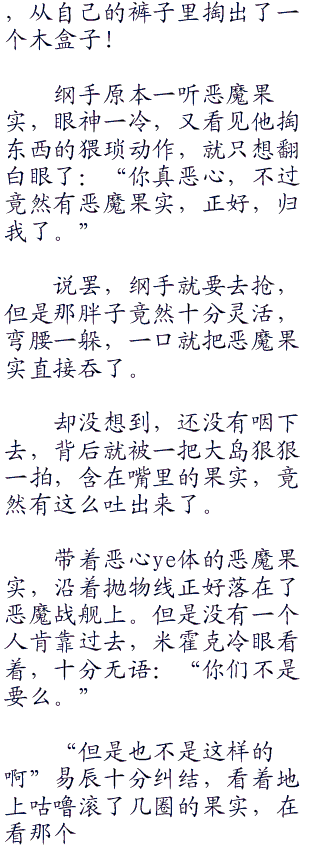 ，从自己的裤子里掏出了一
个木盒子！
纲手原本一听恶魔果
实，眼神一冷，又看见他掏
东西的猥琐动作，就只想翻
白眼了：“你真恶心，不过
竟然有恶魔果实，正好，归
我了。”
说罢，纲手就要去抢，
但是那胖子竟然十分灵活，
弯腰一躲，一口就把恶魔果
实直接吞了。
却没想到，还没有咽下
去，背后就被一把大岛狠狠
一拍，含在嘴里的果实，竟
然有这么吐出来了。
带着恶心ye体的恶魔果
实，沿着抛物线正好落在了
恶魔战舰上。但是没有一个
人肯靠过去，米霍克冷眼看
着，十分无语：“你们不是
要么。”
“但是也不是这样的
啊”易辰十分纠结，看着地
上咕噜滚了几圈的果实，在
看那个